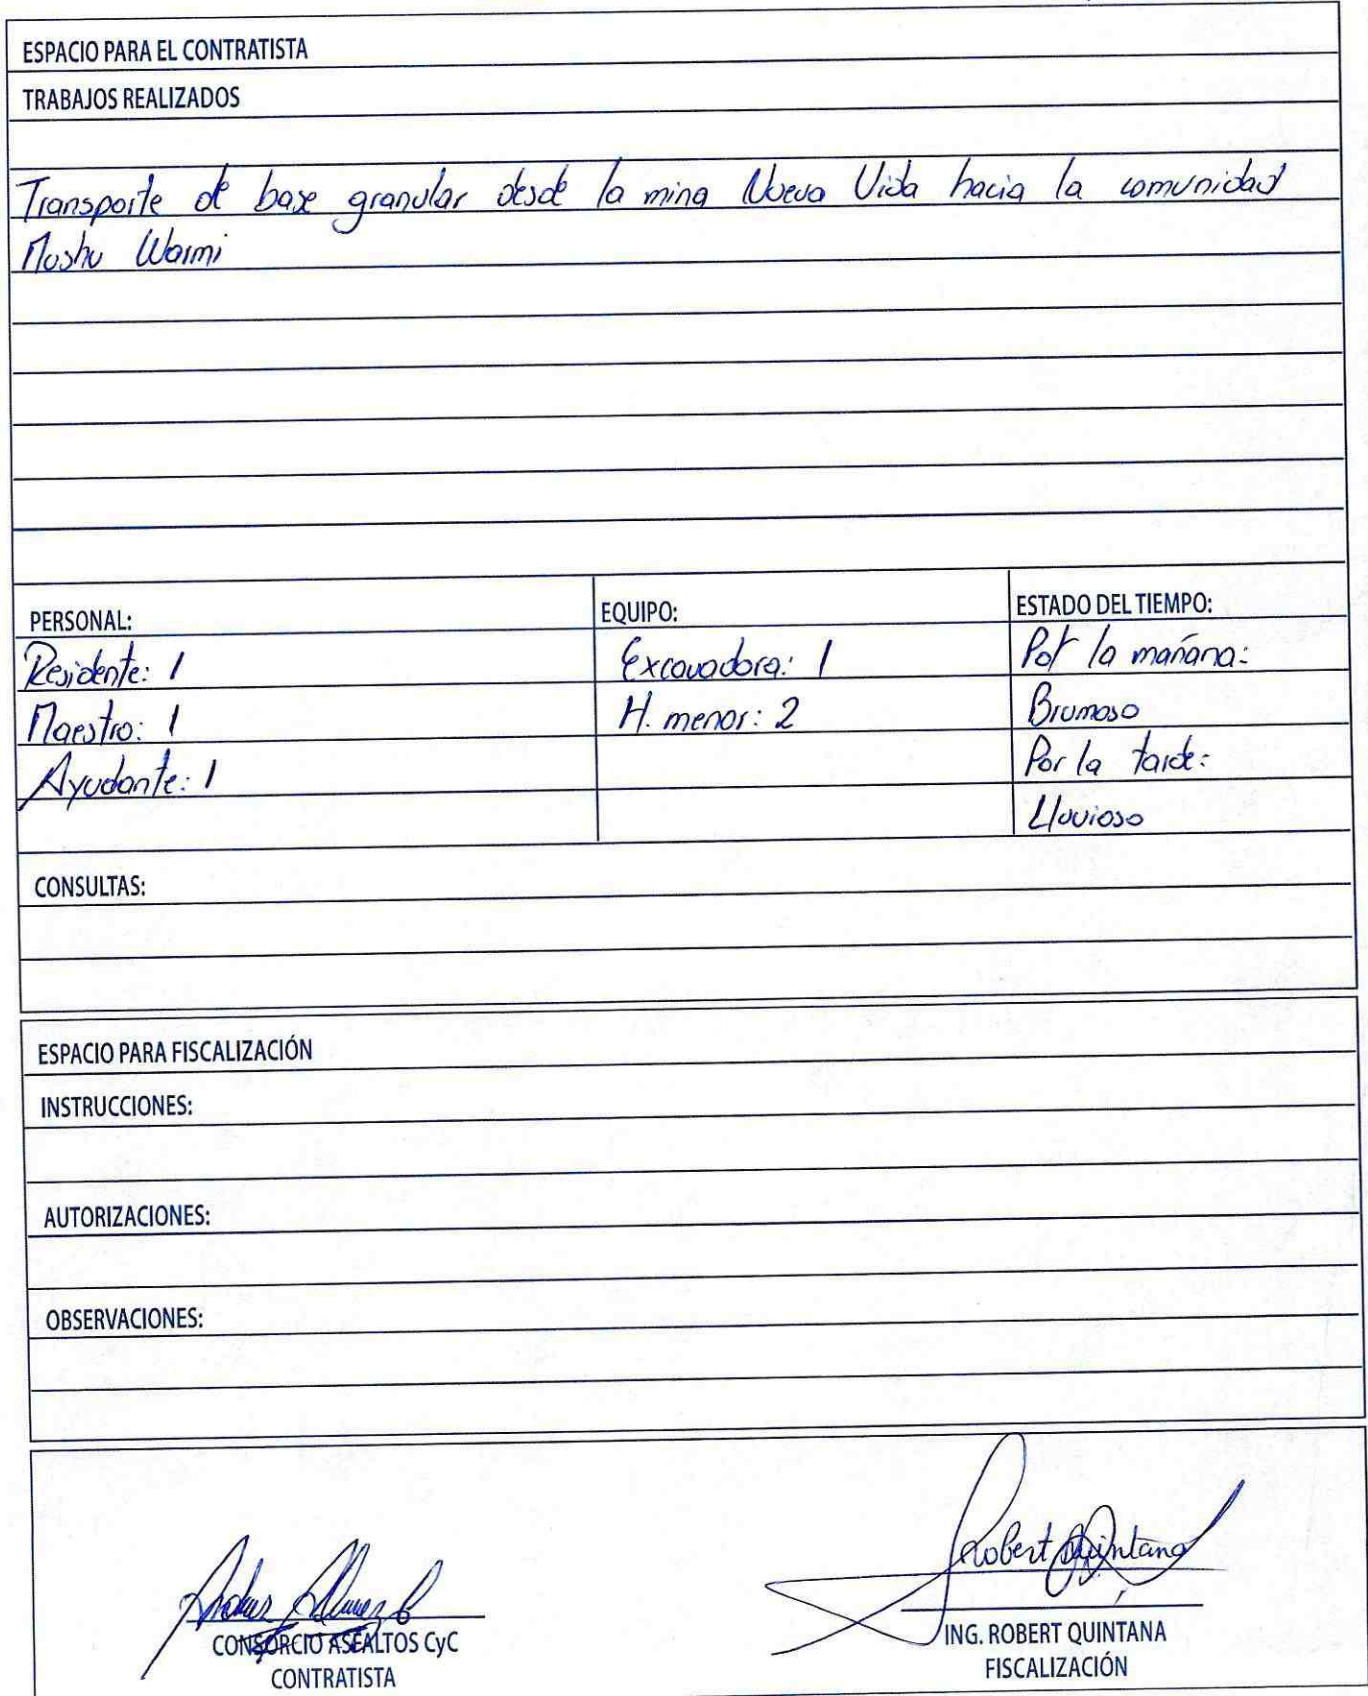 ESPACIO PARA EL CONTRATISTA
TRABAJOS REALIZADOS
Transporte de base granular desde la mina Nueva Vida hacia la comunidad
Mushu Warmi
PERSONAL:
Residente: 1
Maestro: 1
Ayudante: 1
EQUIPO:
Excavadora: 1
H. menor: 2
ESTADO DEL TIEMPO:
Por la mañana:
Brumoso
Por la tarde:
Lluvioso
CONSULTAS:
ESPACIO PARA FISCALIZACIÓN
INSTRUCCIONES:
AUTORIZACIONES:
OBSERVACIONES:
CONSORCIO ASFALTOS CyC
CONTRATISTA
Robert Quintana
ING. ROBERT QUINTANA
FISCALIZACIÓN